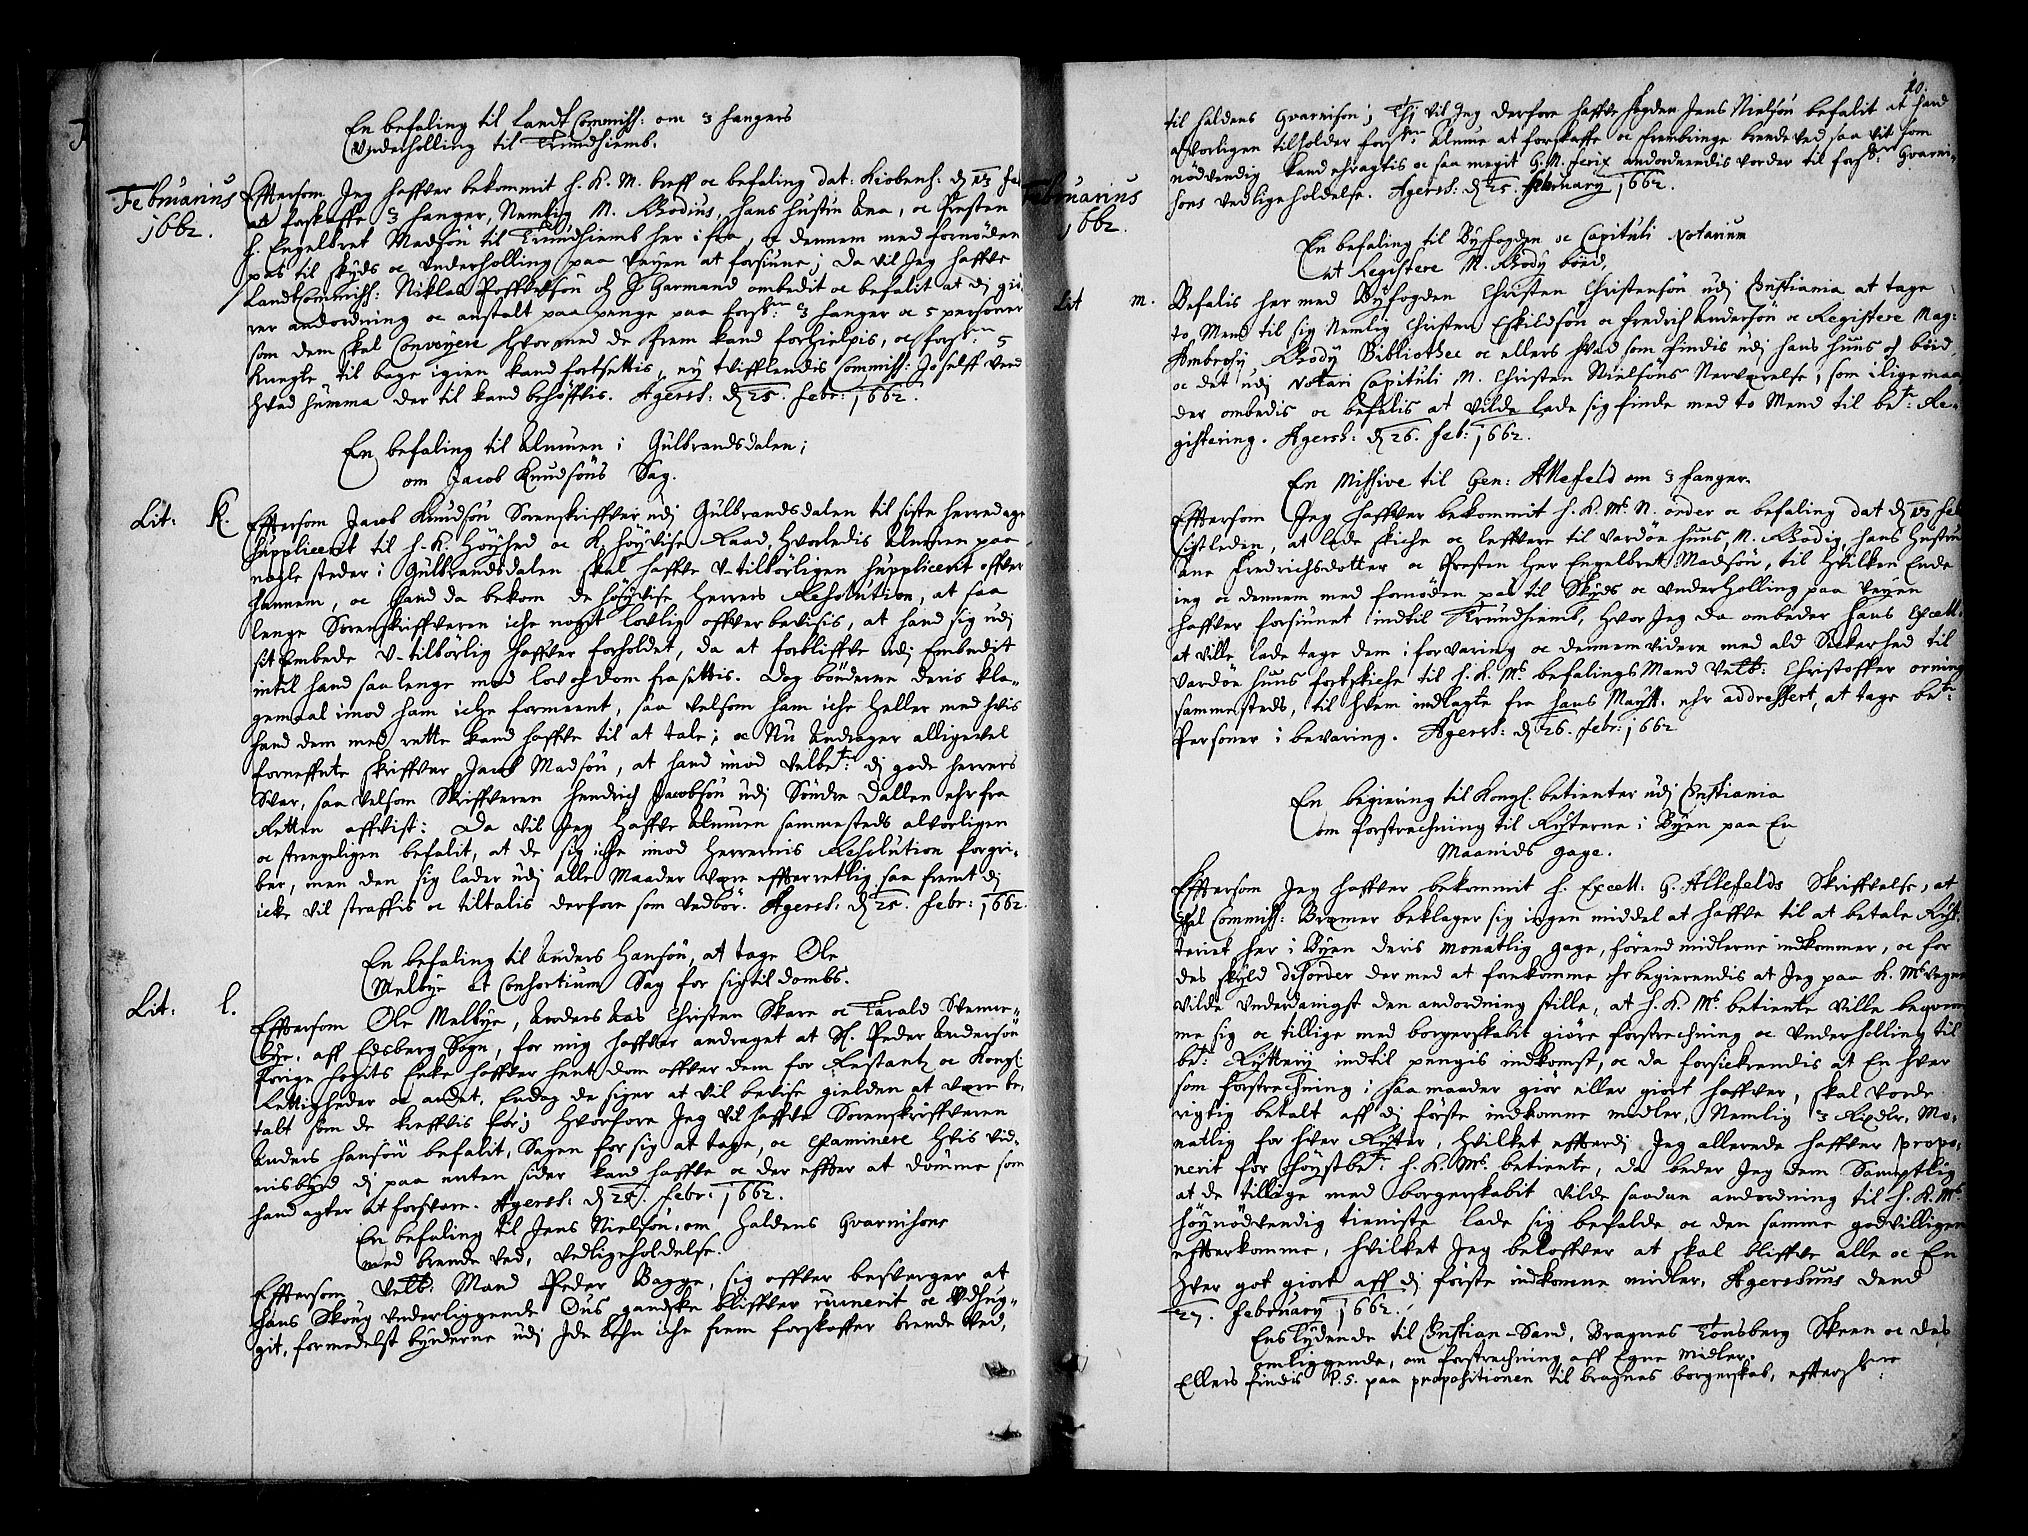 En befaling til Landt Commiss: om 3 fangers
Underholling til Trundhiemb.
Februarius
1662.
Efftersom Jeg haffver bekommit h. K. M. breff oc befaling dat: Kiobenh. d. 13 feb
at forskaffe 3 fanger, Nemlig M. Rhodius, hans hustru Ana, oc Presten
h. Engelbret Madsøn til Trundhiemb her ifra, oc dennem med fornøden
pas til skyds oc underholling paa Veyen at forsiune; da vil Jeg haffve
LandtCommiss: Niklas Poffvelsøn och J Garmand ombedit oc befalit at di giø-
rer andordning oc anstalt paa penge paa forsk: 3 fanger oc 5 personer
som dem skal Convoyere hvormed de frem kand forhielpis, oc forsk: 5
Knegte til bage igien kand fortsettis, ey tvifflendis Commiss: jo selff veed
hvad summa der til kand behøffvis. Agersh: d. 25. febr: 1662.
En befaling til Almuen i Gulbrandsdalen;
om Jacob Knudsøns Sag.
Lit: K.
Efftersom Jacob Knudsøn Sorenskriffver udj Gulbrandsdalen til siste herredage
supplicerit til h. K. Høyhed oc K høyvise Raad, hvorledis Almuen paa
nogle steder i Gulbrandsdalen skal haffve U-tilbørligen supplicerit offver
hannem, oc hand da bekom de høyvise Herrers Resolution, at saa
lenge Sorenskriffveren iche nogit lovlig offverbevisis, at hand sig udj
sit Embede U-tilbørlig haffver forholdet, da at forbliffve udj Embedit
intil hand saa lenge med lov oc dom fra settis. Dog bønderne deris kla-
gemaal imod ham iche formeent, saa velsom ham iche heller med hvis
hand dem med rette kand haffve til at tale; oc Nu Andrager alligevel
fornefnte skriffver Jacob Madsøn, at hand imod velbet: di gode herrers
Svar, saa velsom Skriffveren Hendrich Jacobsøn udj Søndre Dallen ehr fra
Retten affvist: Da vil Jeg haffve Almuen sammesteds alvorligen
oc strengeligen befalit, at de sig iche imod Herrernis Resolution forgri-
ber, men den sig lader udj alle Maader være effterretlig saa fremt di
icke vil straffis oc tiltalis derfore som vedbør. Agersh: d. 25. febr: 1662.
En befaling til Anders Hansøn, at tage Ole
Melbye et Consortium Sag for sig til dombs.
Lit: l.
Efftersom Ole Melbye, Anders Aas Christen Skare oc Tarald Svenne-
bye, aff Edsberg Sogn, for mig haffver andraget at Sl. Peder Andersøn
forige fogits Enke haffver hent dom offver dem for Restantz oc Kongl.
Rettigheder oc andet, Endog de siger at vil bevise gielden at være be-
talt som de kreffvis for; hvorfore Jeg vil haffve Sorenskriffveren
Anders Hansøn befalit, Sagen for sig at tage, oc examinere hvis vid-
nisbyrd di paa enten sider kand haffve oc der effter at dømme som
hand agter at forsvare. Agersh: d. 25. febr: 1662.
En befaling til Jens Nielsøn, om Haldens Gvarnisons
med brende ved, vedligeholdelse.
Efftersom Velb: Mand Peder Bagge, sig offver besverger at
hans Skoug underliggende Ous gandske bliffver ruinerit oc udhug-
git, formedelst bynderne udj Ide Lehn iche frem forskaffer brende Ved,
10.
til haldens Gvarnison; Thj vil Jeg derfore haffve fogden Jens Nielsøn befalit at hand
alvorligen tilholder forsk: Almue at forskaffe oc frembringe brendeved saa vit som
nødvendig kand eragtis oc saa megit G. M. ferix andordnendis vorder til forsk: Gvarni-
sons vedligeholdelse. Agersh: d. 25. february 1662.
Februarius
1662.
En befaling til Byfogden oc Capituli Notarium
At Registere M. Rhody bøed,
Lit m.
Befalis her med Byfogden Christen Christensøn udj Christiania at tage
to Mend til sig Nemlig Christen Eskildsøn oc fredrich Andersøn oc Registere Mag:
Ambrosy Rhody Bibliothec oc ellers hvad som findis udj hans huus oc boed,
oc det udj Notari Capituli M. Christen Nielsøns Nerværelse, som iligemaa
der ombedis oc befalis at vilde lade sig finde med to Mend til bet: Re-
gistering. Agersh: d. 26. feb: 1662.
En Missive til Gen: Allefeld om 3 fanger.
Efftersom Jeg haffver bekommit h. K. Ms. N. order oc befaling dat d. 13 feb
sistleden, at lade skiche oc leffvere til Vardøe huus, M. Rhodig, hans Hustru
Ane Fredrichsdotter oc Presten Her Engelbrett Madsøn, til hvilken Ende
ieg oc dennem med fornøden pas til Skyds oc underholling paa Veyen
haffver forsiunet indtil Trundhiemb, hvor Jeg da ombeder hans Excell:
at ville lade tage dem i forvaring oc dennem videre med ald Sickerhed til
Vardøe huus fortskiche til h. K. Ms. befalings Mand Velb: Christoffer orning
sammesteds, til hvem indlagte fra hans Maytt. ehr addressert, at tage bet:
Personer i bevaring. Agersh: d. 26. febr: 1662
En begiering til Kongl. betienter udj Christiania
om forstrechning til Rytterne i Byen paa En
Maanids gage.
Efftersom Jeg haffver bekommit h. Excell: G. Allefelds Skriffvelse, at
Commiss: Bremer beklager sig ingen middel at haffve til at betale Ryt-
teriet her i Byen deris monatlig gage, førend midlerne indkommer, oc for
des skyld disorder der med at forekomme ehr begierendis at Jeg paa K. Ms. vegne
vilde underdanigst den andordning stille, at h. K. Ms. betiente ville beqvem-
me sig oc tillige med borgerskabit giøre forstrechning oc underholling til
bet: Rytterj indtil pengis indkomst, oc da forsickrendis at En hver
som forstrechning i saa maader giør eller giort haffver, skal vorde
rigtig betalt aff di første indkomne midler, Nemlig 3 Rixdlr. Mo-
natlig for hver Ryter, hvilket effterdj Jeg allerede haffver propo-
nerit for høystbet: h. K. Ms. betiente, da beder Jeg dem Samptlig
at de tillige med borgerskabit vilde saadan andordning til h. K. Ms.
høynødvendig tieniste lade sig befalde oc den samme godvilligen
effterkomme, hvilket Jeg beloffver at skal bliffve alle oc En
hver got giort aff di første indkomne midler. Agershuus dend
27. february 1662.
Enslydende til Christian-Sand, Bragnes Tonsberg Skeen oc des
omliggende, om forstrechning aff Egne midler.
Ellers findis P.S. paa propositionen til bragnes borgerskab,